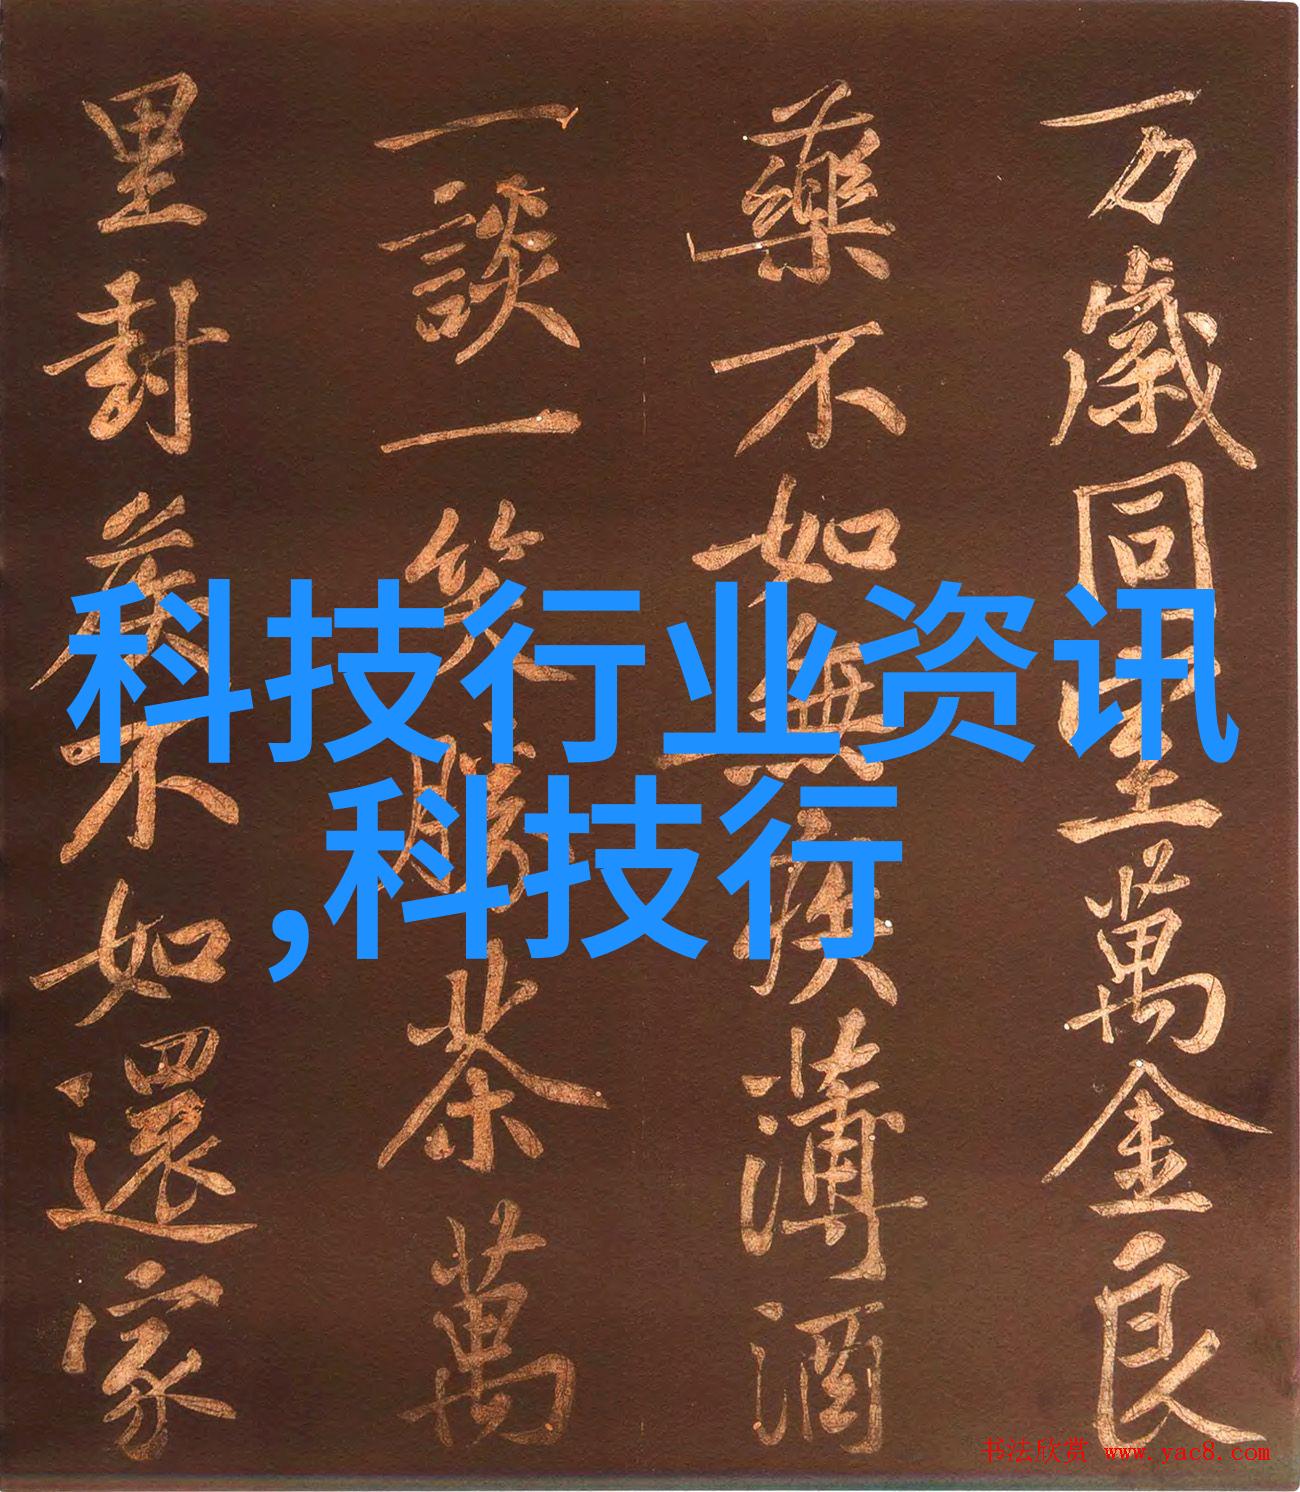 万歲同萬金良
藥不如無疾薄酒
一談一笑勝茶萬
里封侯不如還家
科技行业资讯
,科技行
书法欣赏 www.yac8.com